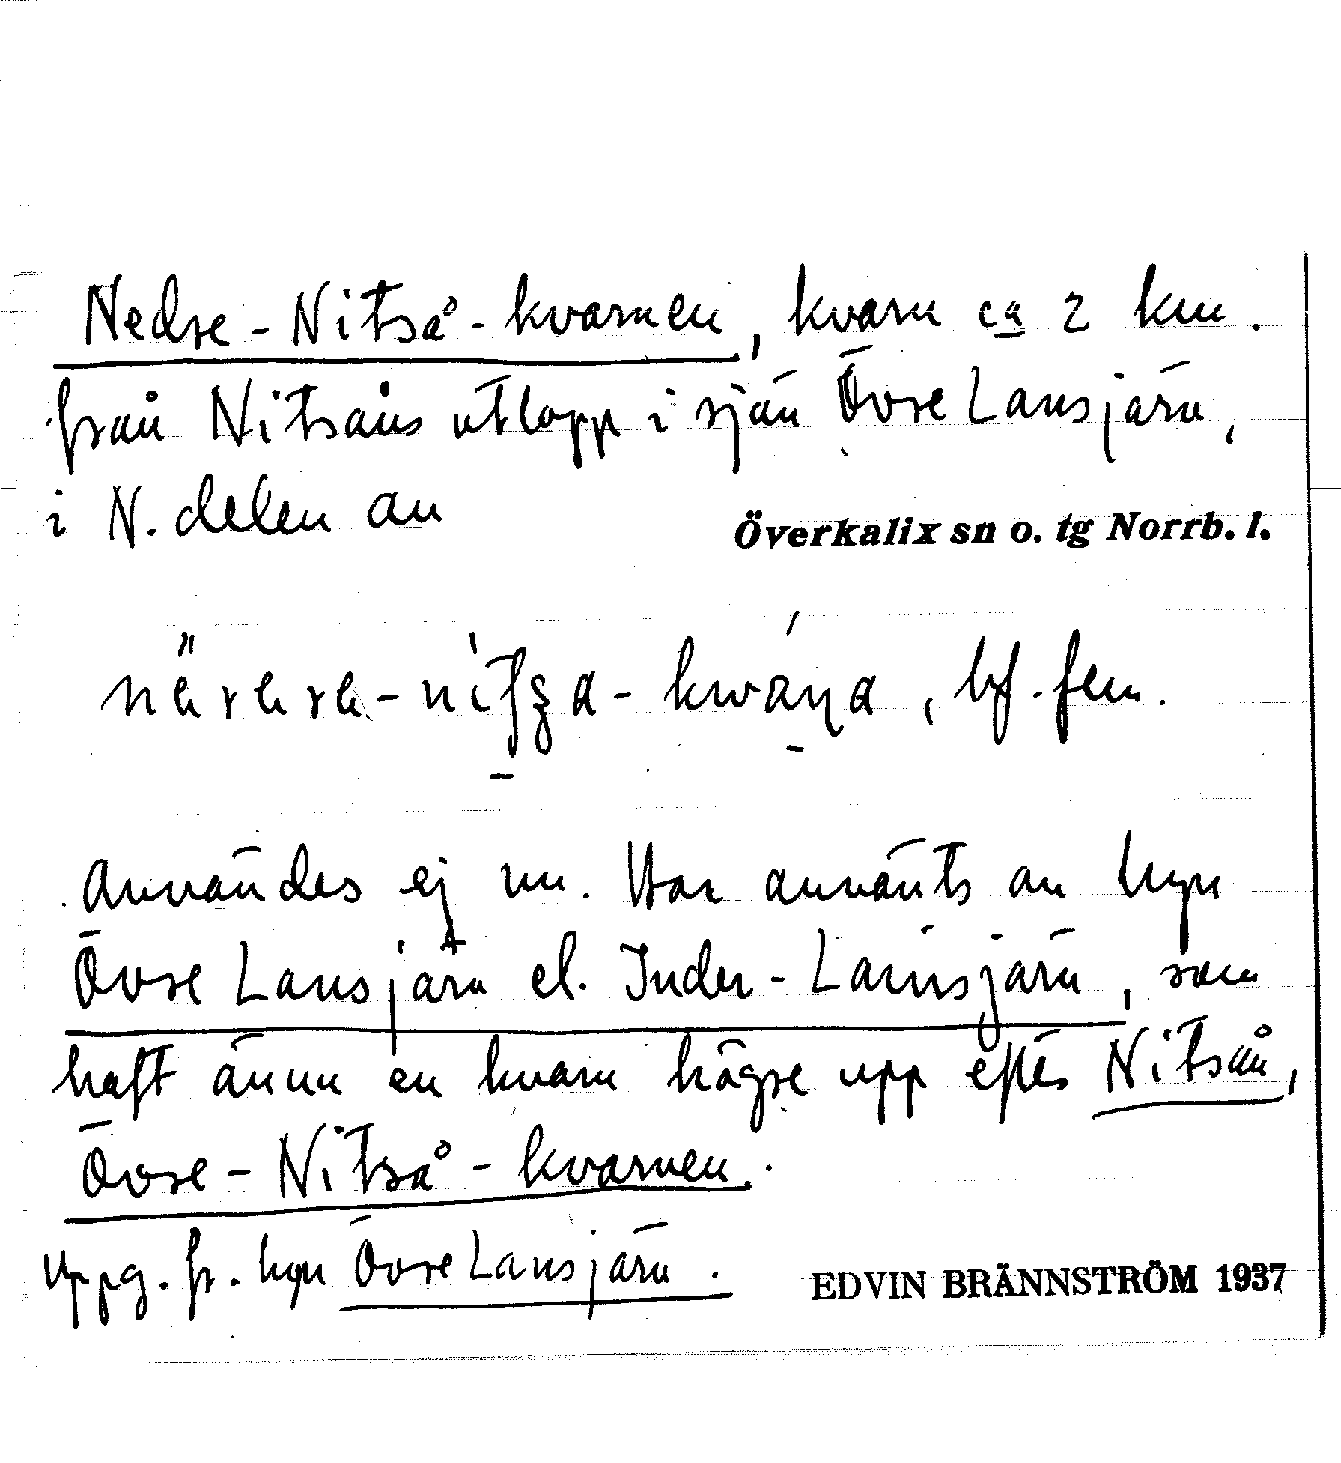 Nedre-Nitså-kvarnen, kvarn ca 2 km.
från Nitsåns utlopp i sjön Övre Lansjärv,
i N. delen av
Överkalix sn o. tg Norrb. l.
bf. fem.
Användes ej nu. Har använts av byn
Övre Lansjärv el. Inder-Lansjärv, som
haft ännu en kvarn högre upp efter Nitsån,
Övre-Nitså-kvarnen.
Uppg. fr. byn Övre Lansjärv.
EDVIN BRÄNNSTRÖM 1937